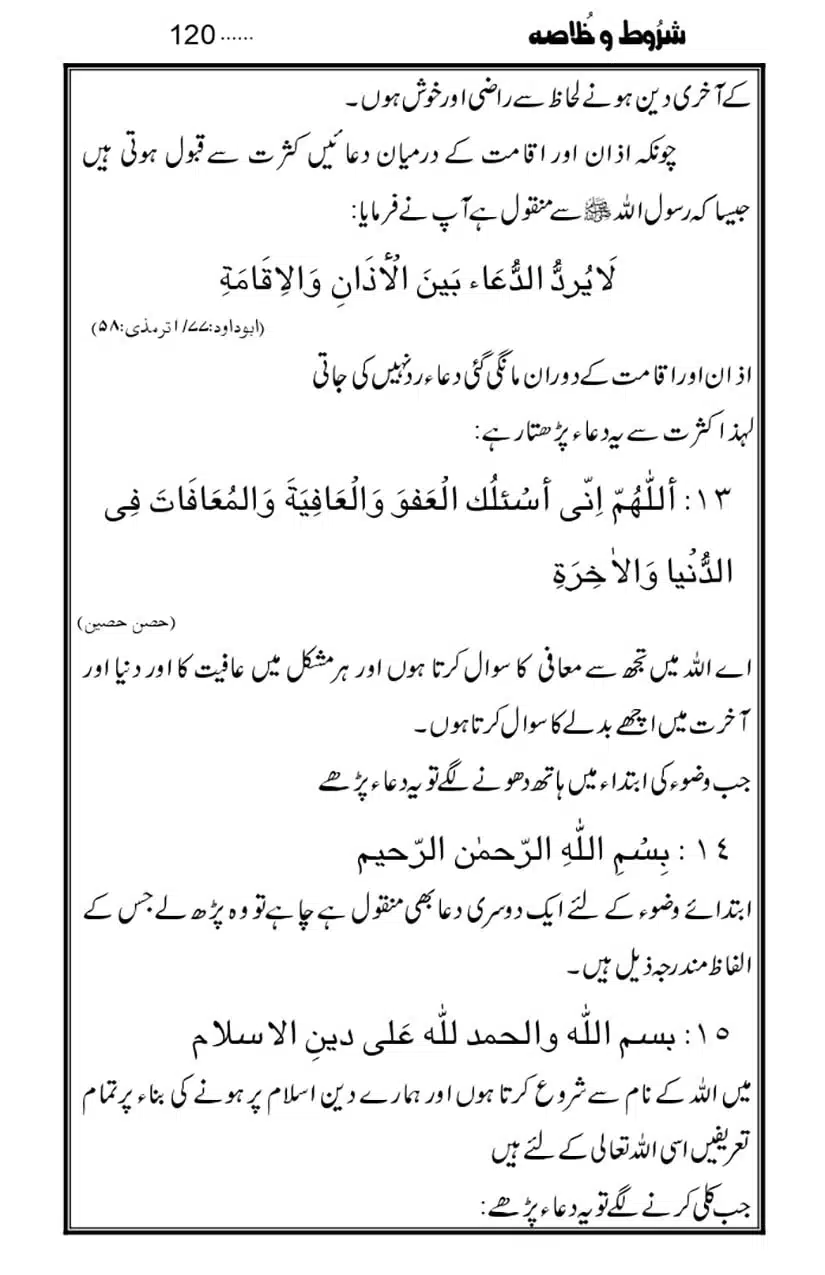 شرُوط و خُلاصه ...... 120
کے آخری دین ہونے لحاظ سے راضی اور خوش ہوں۔
چونکہ اذان اور اقامت کے درمیان دعائیں کثرت سے قبول ہوتی ہیں
جیسا کہ رسول اللہ ﷺ سے منقول ہے آپ نے فرمایا:
لَا یُردُّ الدُّعَاء بَینَ الْأذَانِ وَالِاقَامَةِ
(ابوداود:۷۷/ا ترمذی:۵۸)
اذان اور اقامت کے دوران مانگی گئی دعاء رد نہیں کی جاتی
لہذا کثرت سے یہ دعاء پڑھتا رہے:
١٣: أللّٰهُمّ اِنّی أسْئلُك الْعَفوَ وَالْعَافِیَةَ وَالمُعَافَاتَ فِی
الدُّنْیا وَالاٰخِرَةِ
(حصن حصین)
اے اللہ میں تجھ سے معافی کا سوال کرتا ہوں اور ہر مشکل میں عافیت کا اور دنیا اور
آخرت میں اچھے بدلے کا سوال کرتا ہوں۔
جب وضوء کی ابتداء میں ہاتھ دھونے لگے تو یہ دعاء پڑھے
١٤: بِسْمِ اللّٰهِ الرّحمٰن الرّحیم
ابتدائے وضوء کے لئے ایک دوسری دعا بھی منقول ہے چاہے تو وہ پڑھ لے جس کے
الفاظ مندرجہ ذیل ہیں۔
١٥: بسم اللّٰه والحمد للّٰه عَلی دینِ الاسلام
میں اللہ کے نام سے شروع کرتا ہوں اور ہمارے دین اسلام پر ہونے کی بناء پر تمام
تعریفیں اسی اللہ تعالی کے لئے ہیں
جب کلی کرنے لگے تو یہ دعاء پڑھے: